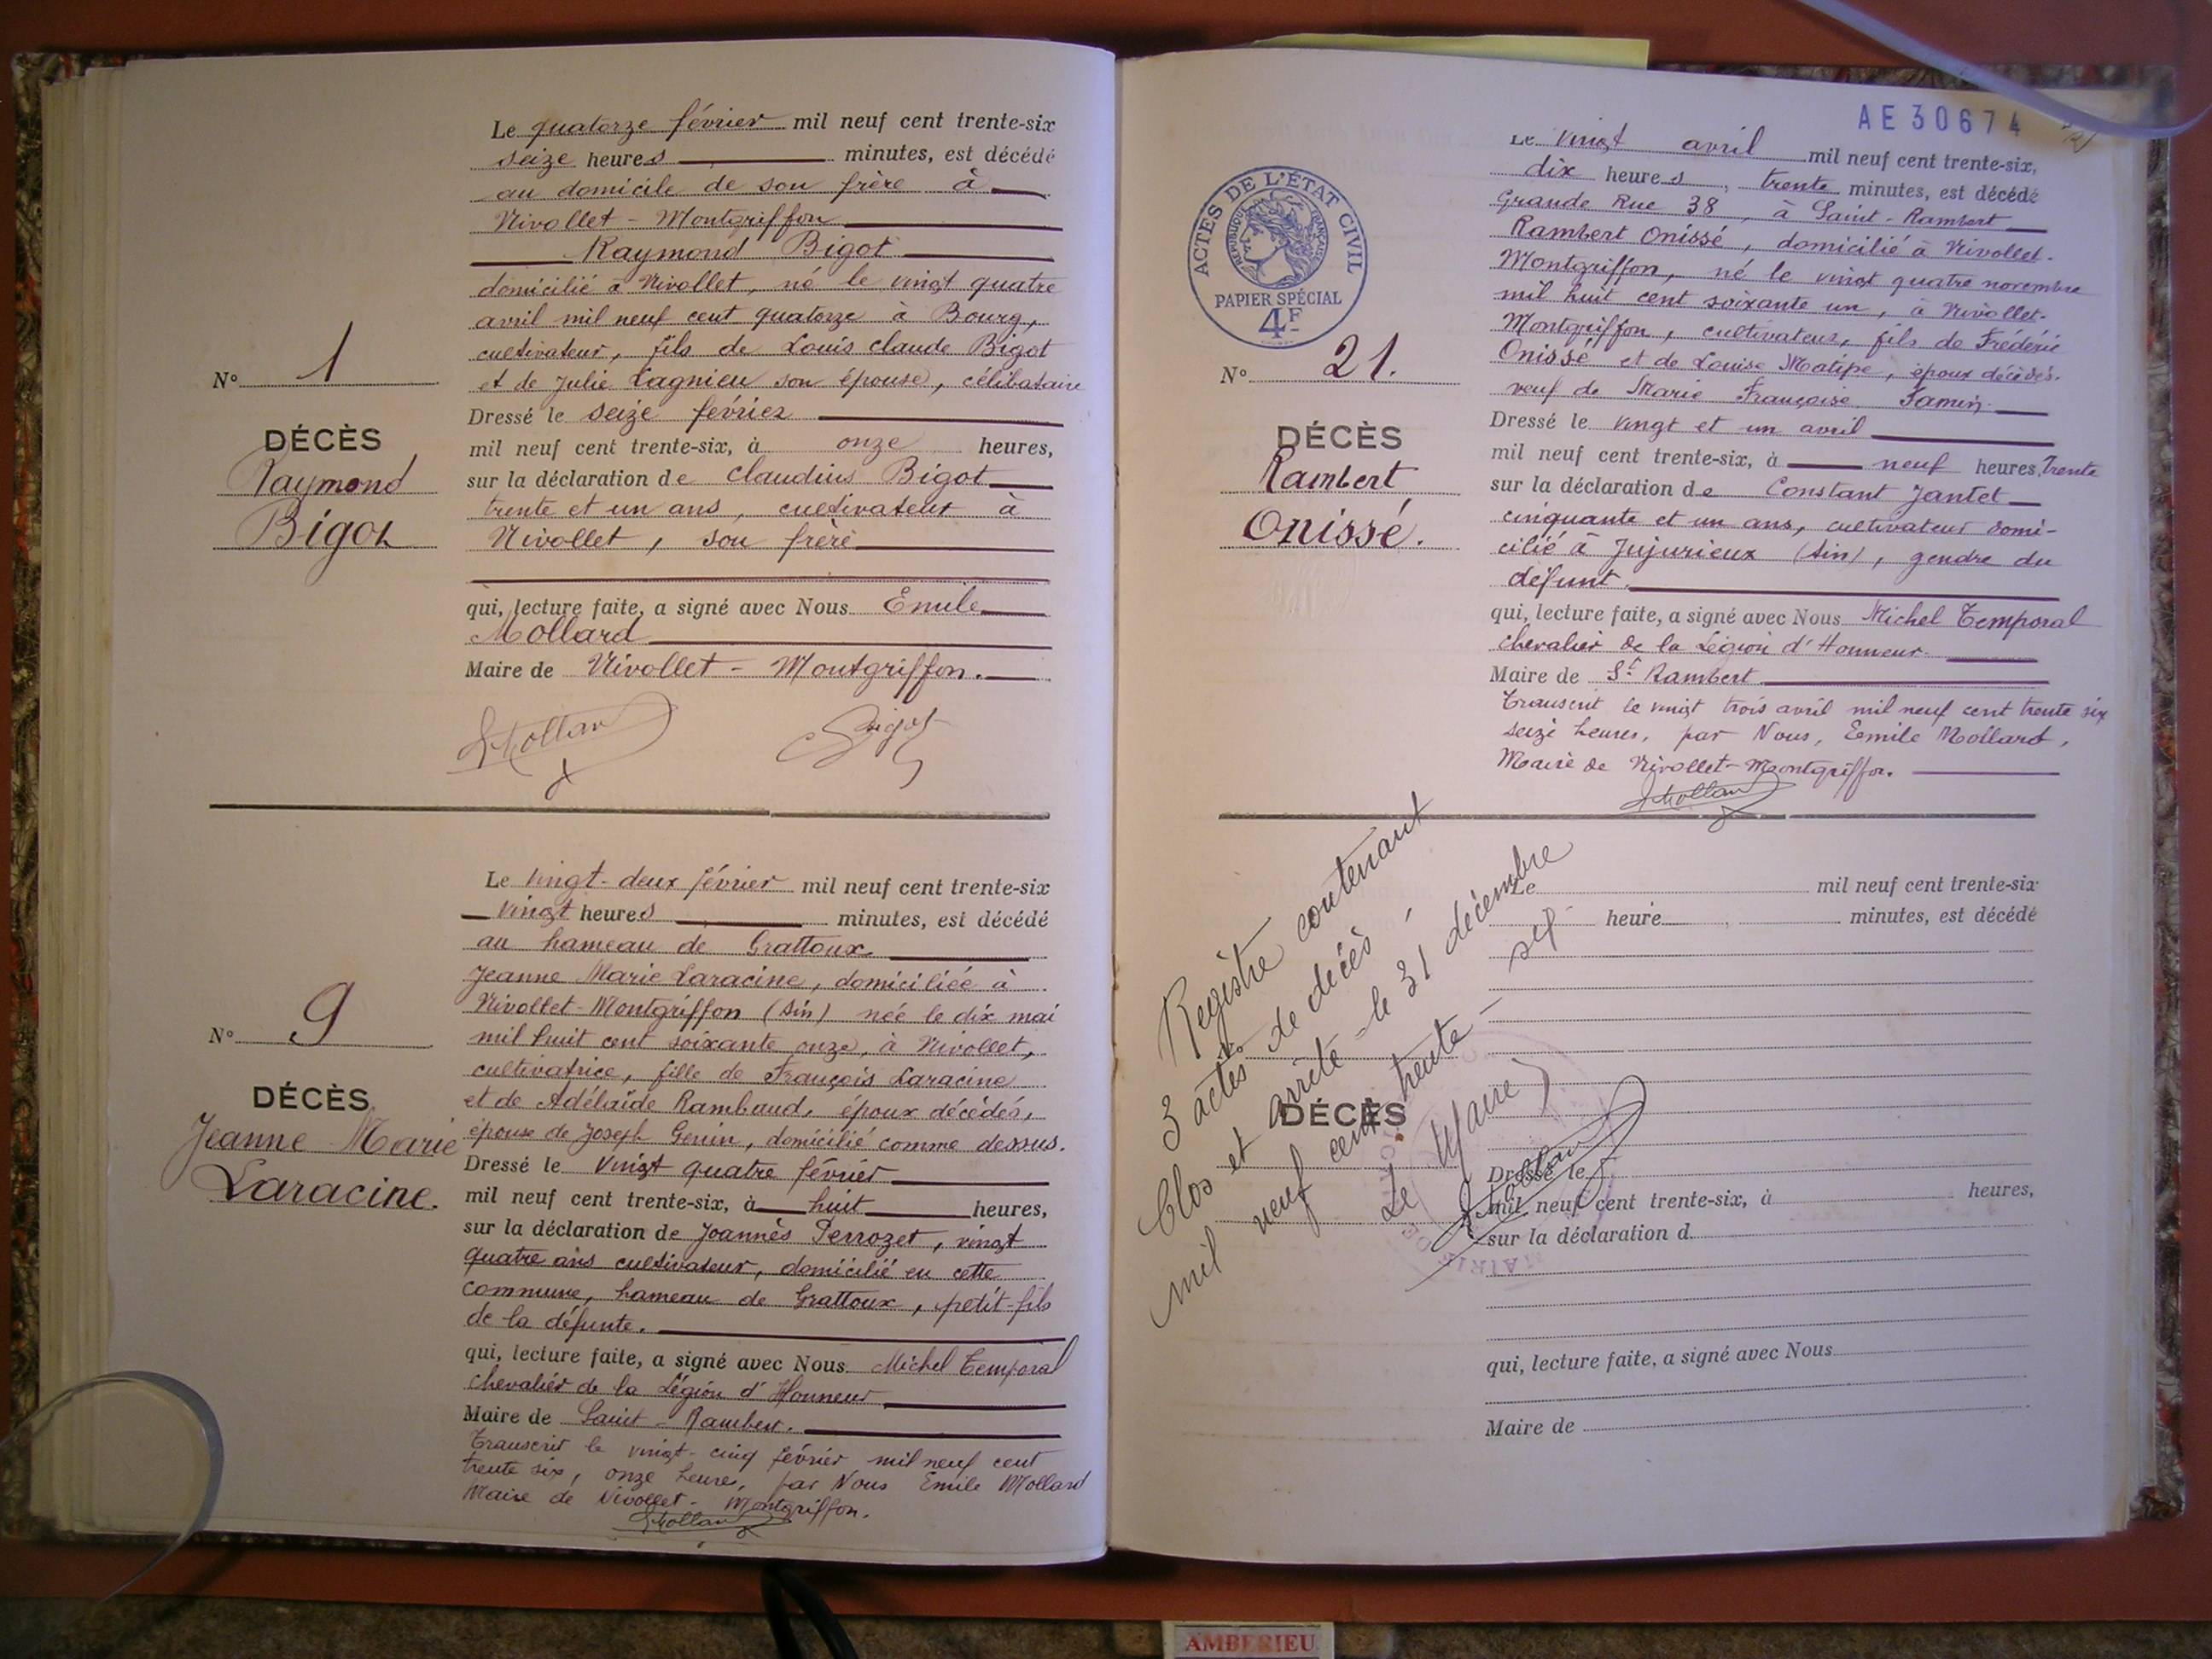 N° 1
DÉCÈS
Raymond
Bigot
Le quatorze février mil neuf cent trente-six
seize heures minutes, est décédé
au domicile de son frère à
Nivollet - Montgriffon
Raymond Bigot
domicilié à Nivollet, né le vingt quatre
avril mil neuf cent quatorze à Bourg,
cultivateur, fils de Louis Claude Bigot
et de Julie Lagnieu son épouse, célibataire
Dressé le seize février
mil neuf cent trente-six, à onze heures,
sur la déclaration de Claudius Bigot
trente et un ans, cultivateur à
Nivollet, son frère
qui, lecture faite, a signé avec Nous Emile
Mollard
Maire de Nivollet - Montgriffon.
EMollard Bigot
N° 9
DÉCÈS
Jeanne Marie
Laracine.
Le vingt-deux février mil neuf cent trente-six
vingt heures minutes, est décédé
au hameau de Grattoux
Jeanne Marie Laracine, domiciliée à
Nivollet-Montgriffon (Ain) née le dix mai
mil huit cent soixante onze, à Nivollet,
cultivatrice, fille de François Laracine
et de Adélaïde Rambaud, époux décédés,
épouse de Joseph Genin, domicilié comme dessus.
Dressé le vingt quatre février
mil neuf cent trente-six, à huit heures,
sur la déclaration de Joannès Perrozet, vingt
quatre ans cultivateur, domicilié en cette
commune, hameau de Grattoux, petit-fils
de la défunte.
qui, lecture faite, a signé avec Nous Michel Temporal
chevalier de la Légion d'Honneur
Maire de Saint-Rambert.
Transcrit le vingt-cinq février mil neuf cent
trente six, onze heures, par Nous Emile Mollard
Maire de Nivollet-Montgriffon.
EMollard
AE 30674
ACTES DE L'ÉTAT CIVIL
RÉPUBLIQUE FRANÇAISE
PAPIER SPÉCIAL
4F
N° 21.
DÉCÈS
Rambert
Onissé.
Le vingt avril mil neuf cent trente-six,
dix heures, trente minutes, est décédé
Grande Rue 38, à Saint-Rambert
Rambert Onissé, domicilié à Nivollet-
Montgriffon, né le vingt quatre novembre
mil huit cent soixante un, à Nivollet-
Montgriffon, cultivateur, fils de Frédéric
Onissé et de Louise Matipe, époux décédés.
veuf de Marie Françoise Jamin
Dressé le vingt et un avril
mil neuf cent trente-six, à neuf heures, trente
sur la déclaration de Constant Jantet
cinquante et un ans, cultivateur domi-
cilié à Jujurieux (Ain), gendre du
défunt.
qui, lecture faite, a signé avec Nous Michel Temporal
chevalier de la Légion d'Honneur
Maire de St Rambert
Transcrit le vingt trois avril mil neuf cent trente six
seize heures, par Nous, Emile Mollard,
Maire de Nivollet-Montgriffon.
EMollard
Registre contenant
3 actes de décès -
Clos et arrêté le 31 décembre
mil neuf cent trente - six
Le Maire
EMollard
DÉCÈS
Le mil neuf cent trente-six
heure , minutes, est décédé
Dressé le
mil neuf cent trente-six, à heures,
sur la déclaration d
qui, lecture faite, a signé avec Nous
Maire de
MAIRIE DE
AMBERIEU